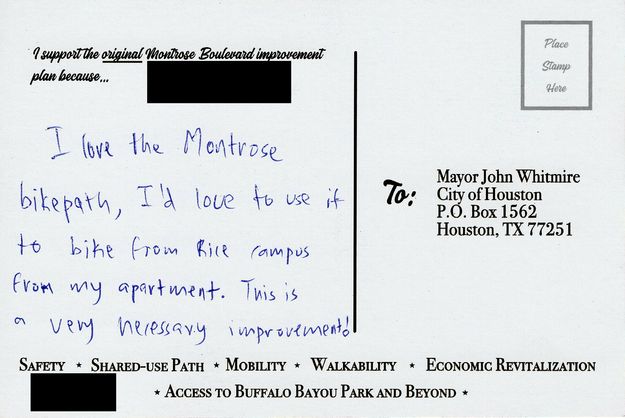 I support the original Montrose Boulevard improvement
plan because...
I love the Montrose
bikepath, I'd love to use it
to bike from Rice campus
from my apartment. This is
a very necessary improvement!
Place
Stamp
Here
To:
Mayor John Whitmire
City of Houston
P.O. Box 1562
Houston, TX 77251
SAFETY ⋆ SHARED-USE PATH ⋆ MOBILITY ⋆ WALKABILITY ⋆ ECONOMIC REVITALIZATION
⋆ ACCESS TO BUFFALO BAYOU PARK AND BEYOND ⋆